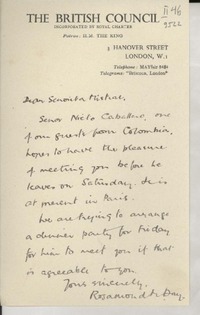 THE BRITISH COUNCIL
INCORPORATED BY ROYAL CHARTER
Patron: H.M. THE KING
3 HANOVER STREET
LONDON, W.1
Telephone: MAYfair 8484
Telegrams: "Britcoun, London"
Dear Señorita Mistral,
Señor Nieto Caballero, one
of our guests from Colombia,
hopes to have the pleasure
of meeting you before he
leaves on Saturday. He is
at present in Paris.
We are hoping to arrange
a dinner party for Friday
for him to meet you if that
is agreeable to you.
Yours sincerely,
Rosamond Day.